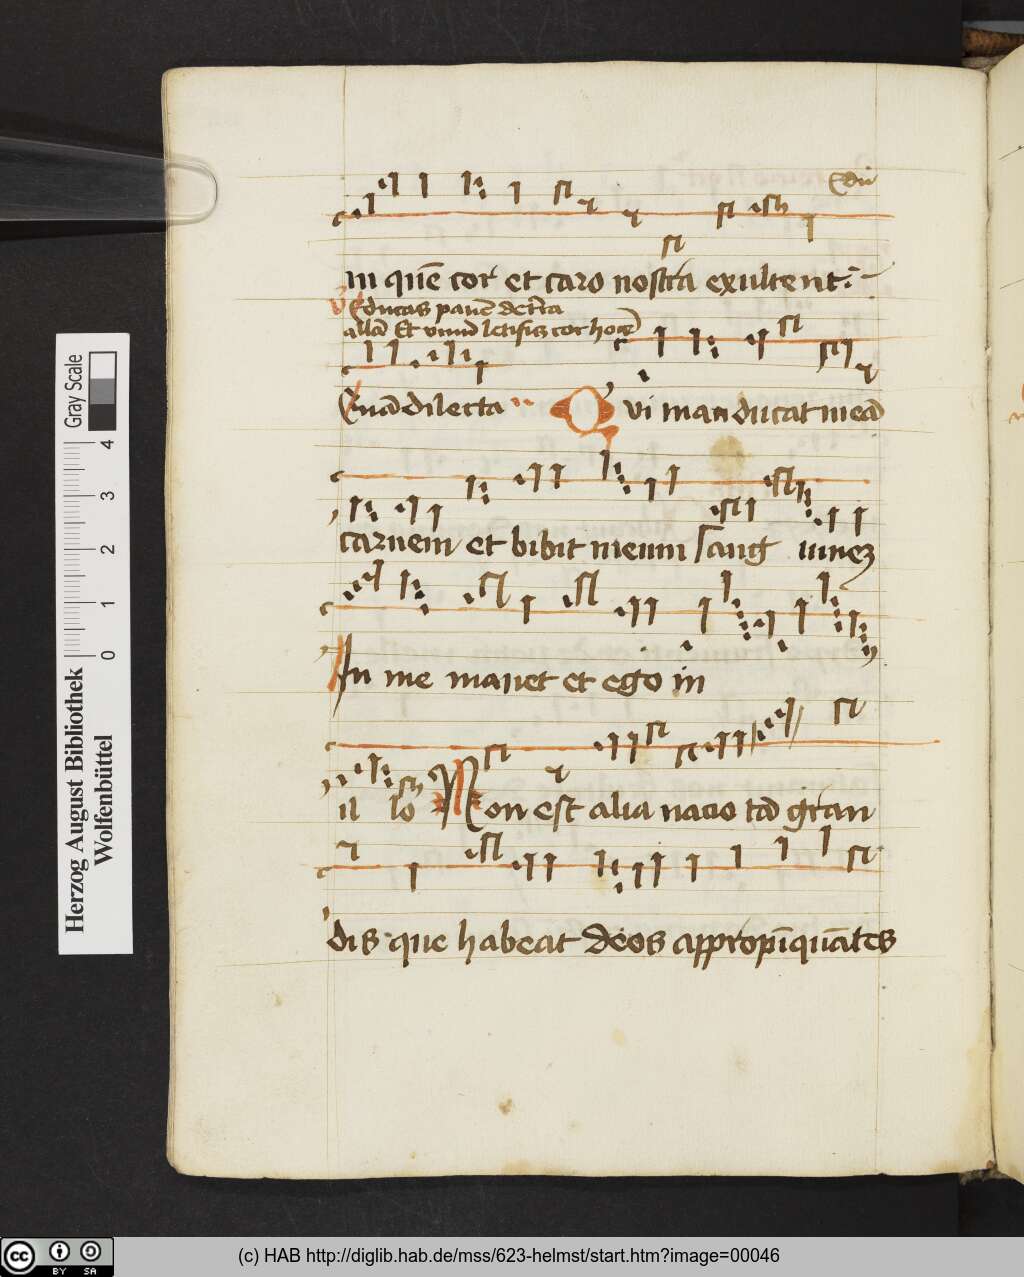 in quē cor et caro nostra exultent.
V Educas panē de t'ra
allā Et vinū letificꝫ cor hoīs
Quā dilecta Qui manducat meā
carnem et bibit meum sang uineꝫ
In me manet et ego in
il lo Non est alia nacio tā gran
dis que habeat deos appropīquātes
Herzog August Bibliothek
Wolfenbüttel
Gray Scale
0 1 2 3 4
cc BY SA
(c) HAB http://diglib.hab.de/mss/623-helmst/start.htm?image=00046